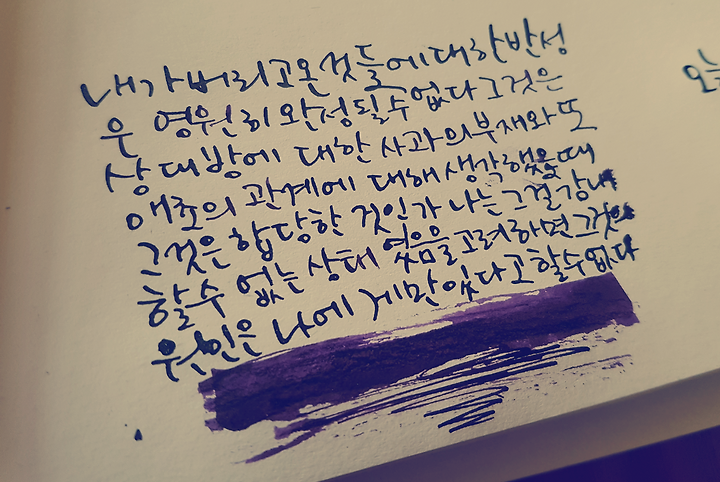 내가버리고온것들에대한반성
은 영원히 완성될수없다그것은
상대방에 대한 사과의부재와또
애초의 관계에 대해 생각했을때
그것은합당한 것인가 나는그걸감내
할수 없는 상태 였음을고려하면그것의
원인은 나에게만있다고할수없다
오늘